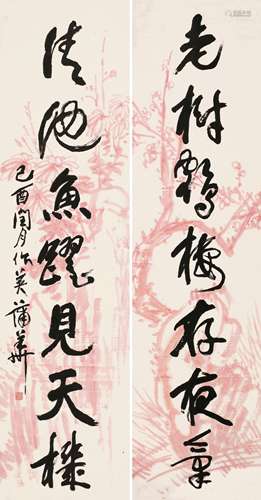 老樹鶴棲存夜氣
清池魚躍見天機
己酉閏月作英蒲華